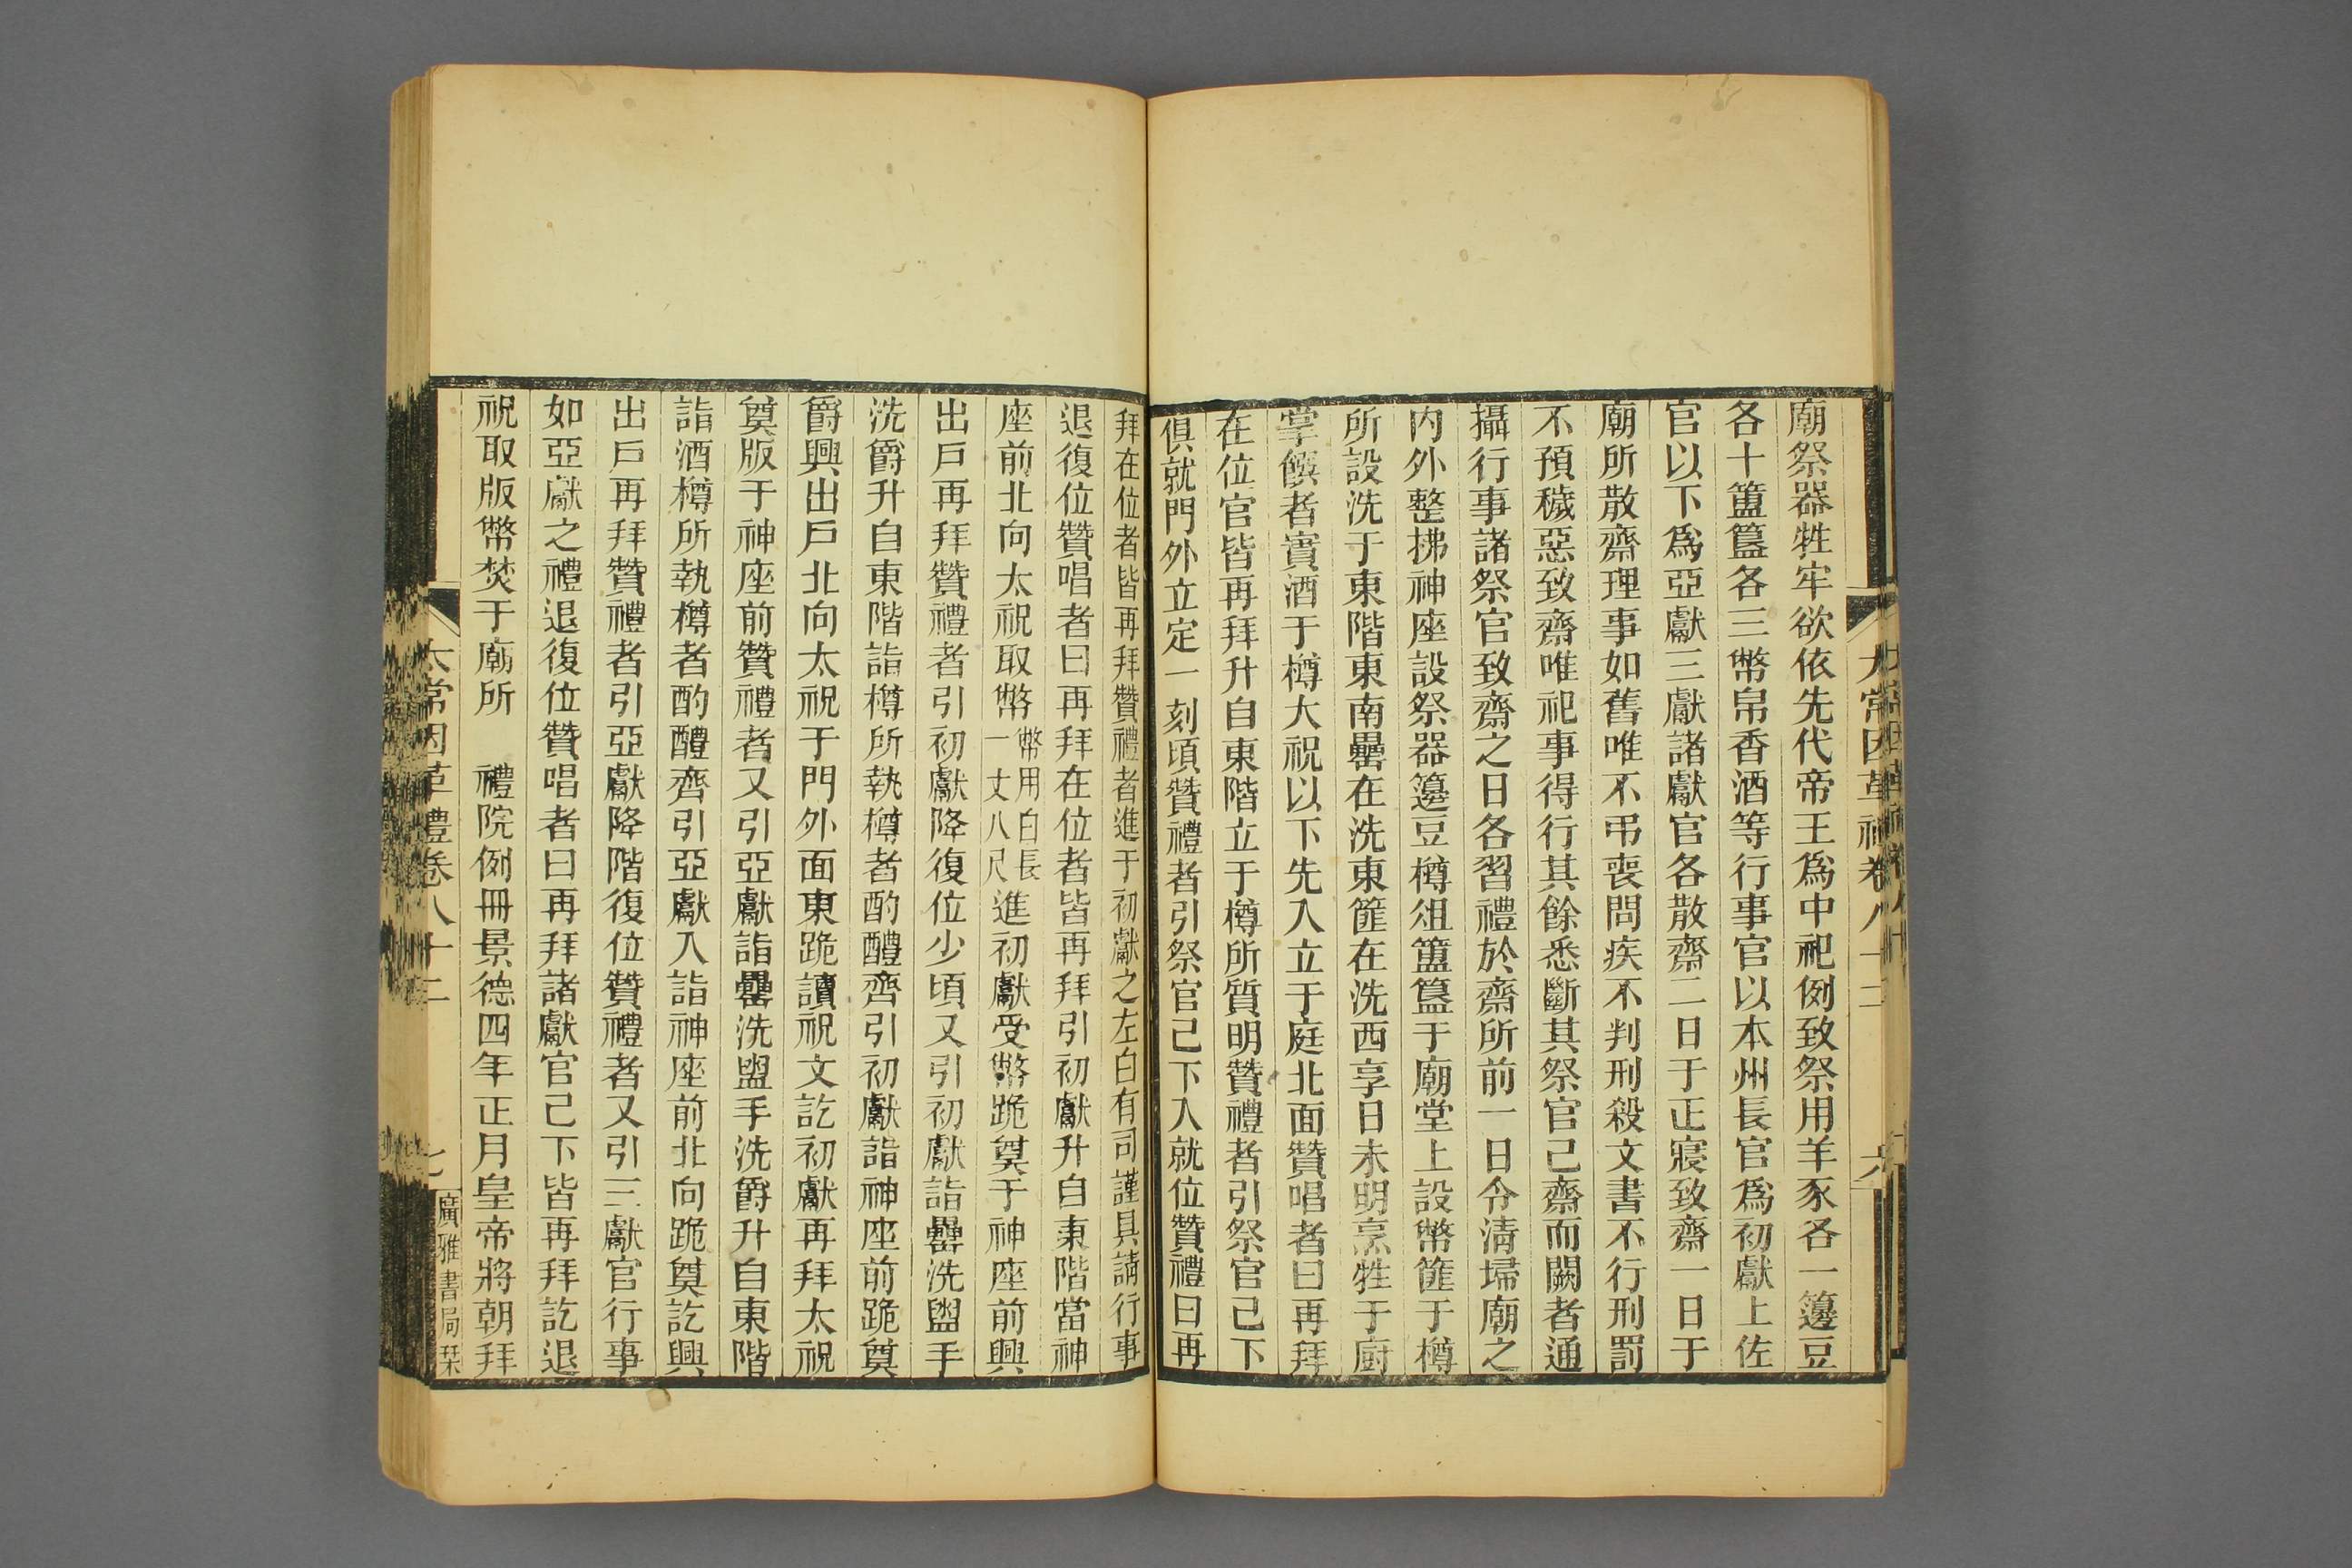 廟祭器牲牢欲依先代帝王爲中祀例致祭用羊豕各一籩豆
各十簠簋各三幣帛香酒等行事官以本州長官爲初獻上佐
官以下爲亞獻三獻諸獻官各散齋二日于正寢致齋一日于
廟所散齋理事如舊唯不弔喪問疾不判刑殺文書不行刑罰
不預穢惡致齋唯祀事得行其餘悉斷其祭官己齋而闕者通
攝行事諸祭官致齋之日各習禮於齋所前一日令清埽廟之
內外整拂神座設祭器籩豆樽俎簠簋于廟堂上設幣篚于樽
所設洗于東階東南罍在洗東篚在洗西享日未明烹牲于廚
掌饌者實酒于樽大祝以下先入立于庭北面贊唱者曰再拜
在位官皆再拜升自東階立于樽所質明贊禮者引祭官己下
俱就門外立定一刻頃贊禮者引祭官己下入就位贊禮曰再
拜在位者皆再拜贊禮者進于初獻之左白有司謹具請行事
退復位贊唱者曰再拜在位者皆再拜引初獻升自東階當神
座前北向太祝取幣幣用白長一丈八尺進初獻受幣跪奠于神座前興
出戶再拜贊禮者引初獻降復位少頃又引初獻詣罍洗盥手
洗爵升自東階詣樽所執樽者酌醴齊引初獻詣神座前跪奠
爵興出戶北向太祝于門外面東跪讀祝文訖初獻再拜太祝
奠版于神座前贊禮者又引亞獻詣罍洗盥手洗爵升自東階
詣酒樽所執樽者酌醴齊引亞獻入詣神座前北向跪奠訖興
出戶再拜贊禮者引亞獻降階復位贊禮者又引三獻官行事
如亞獻之禮退復位贊唱者曰再拜諸獻官己下皆再拜訖退
祝取版幣焚于廟所　禮院例冊景德四年正月皇帝將朝拜
太常因革禮卷八十二
七
廣雅書局栞